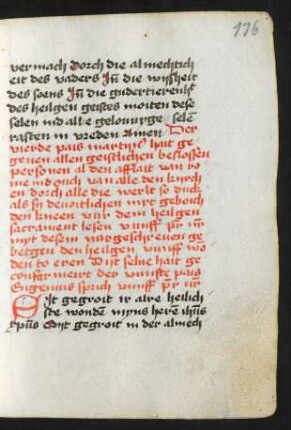 176
vermach dorch die almechtich
eit des vaders In die wijsheit
des soens In die gudertierenh
des heilgen geistes moiten dese
selen ind alle geloiuige selen
rasten in vreden Amen Der
vierde pais martinus hait ge
geuen allen geistlichen beslossen
personen al den afflait van ro
me ind ouch van alle den kirch
en dorch alle die werlt so duck
als sy devoitlichen myt geboich
den kneen vur dem heilgen
sacrament lesen vunff pr nr
myt desem nageschreuen ge
beitgen den heilgen vunff wo
den to eren Dit selue hait ge
confermeirt der vunfte pais
Eugenius sprich vunff pr nr
Syt gegroit ir alre heilich
ste wonden myns heren ihesus
xpus Syt gegroit in der almech